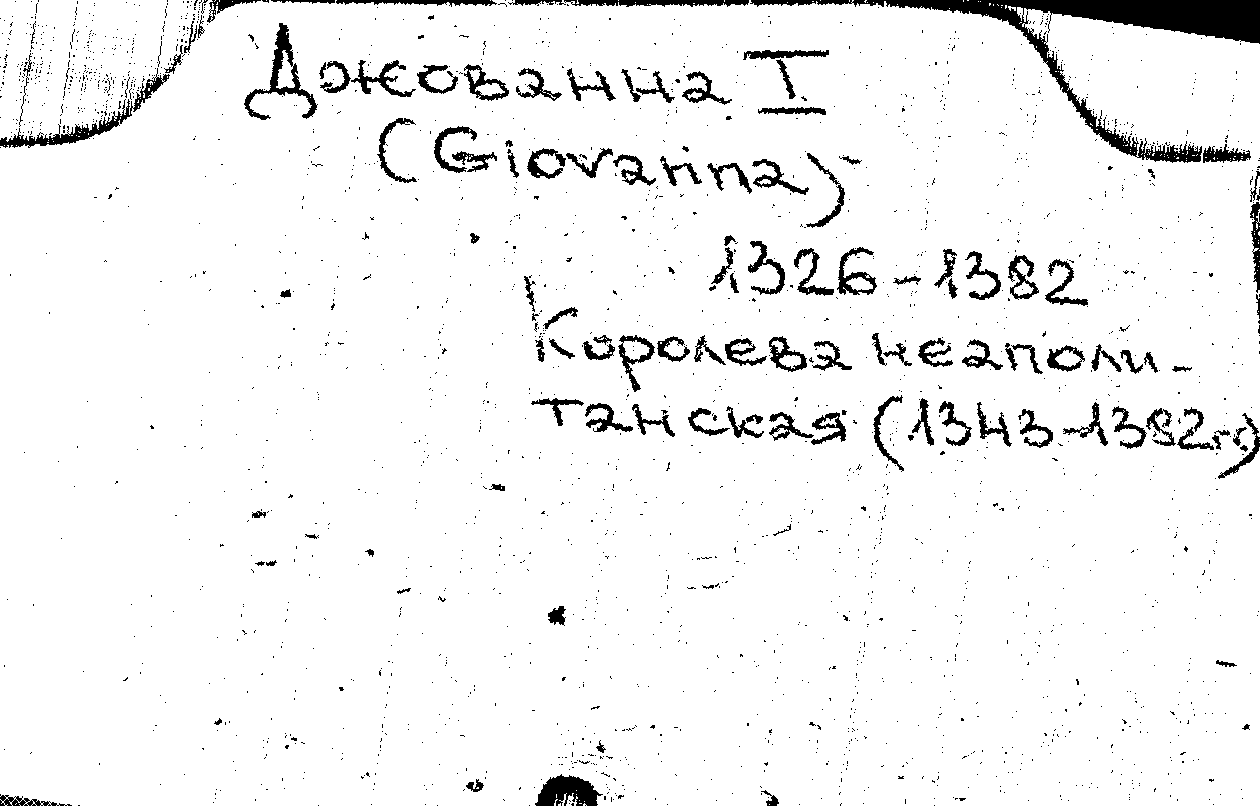 Джованна I
(Giovanna)
1326-1382
Королева неаполи-
танская (1343-1382гг.)